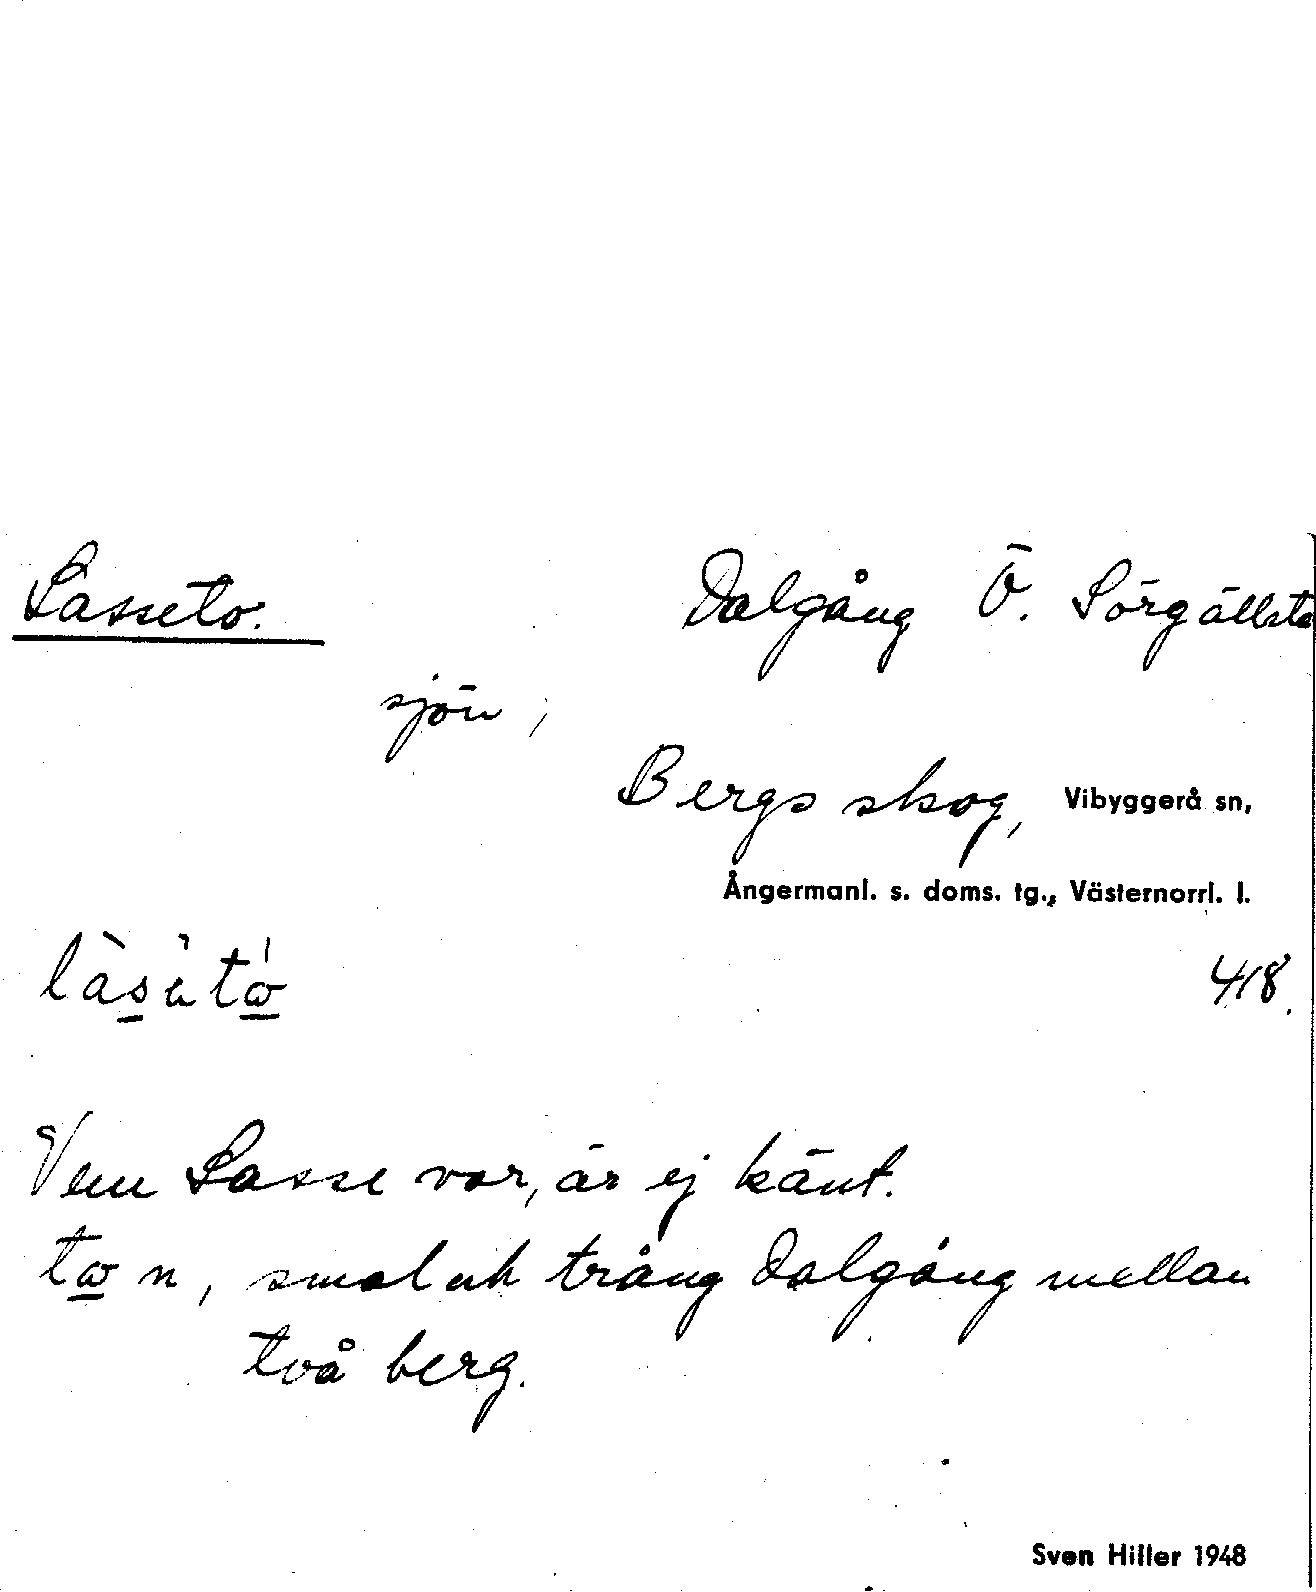 Lasseto. Dalgång Ö. Sörgällsta
sjön,
Bergs skog, Vibyggerå sn,
Ångermanl. s. doms. tg., Västernorrl. l.
418.
Vem Lasse var, är ej känt.
n, smal och trång dalgång mellan
två berg.
Sven Hiller 1948